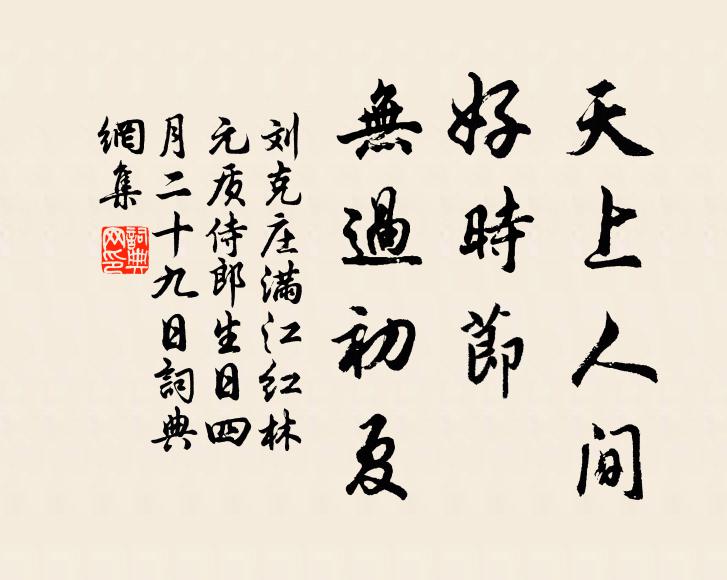 天上人间
好時節
無過初夏
刘克庄满江红林
元质侍郎生日四
月二十九日詞典
網集
詞典
网印